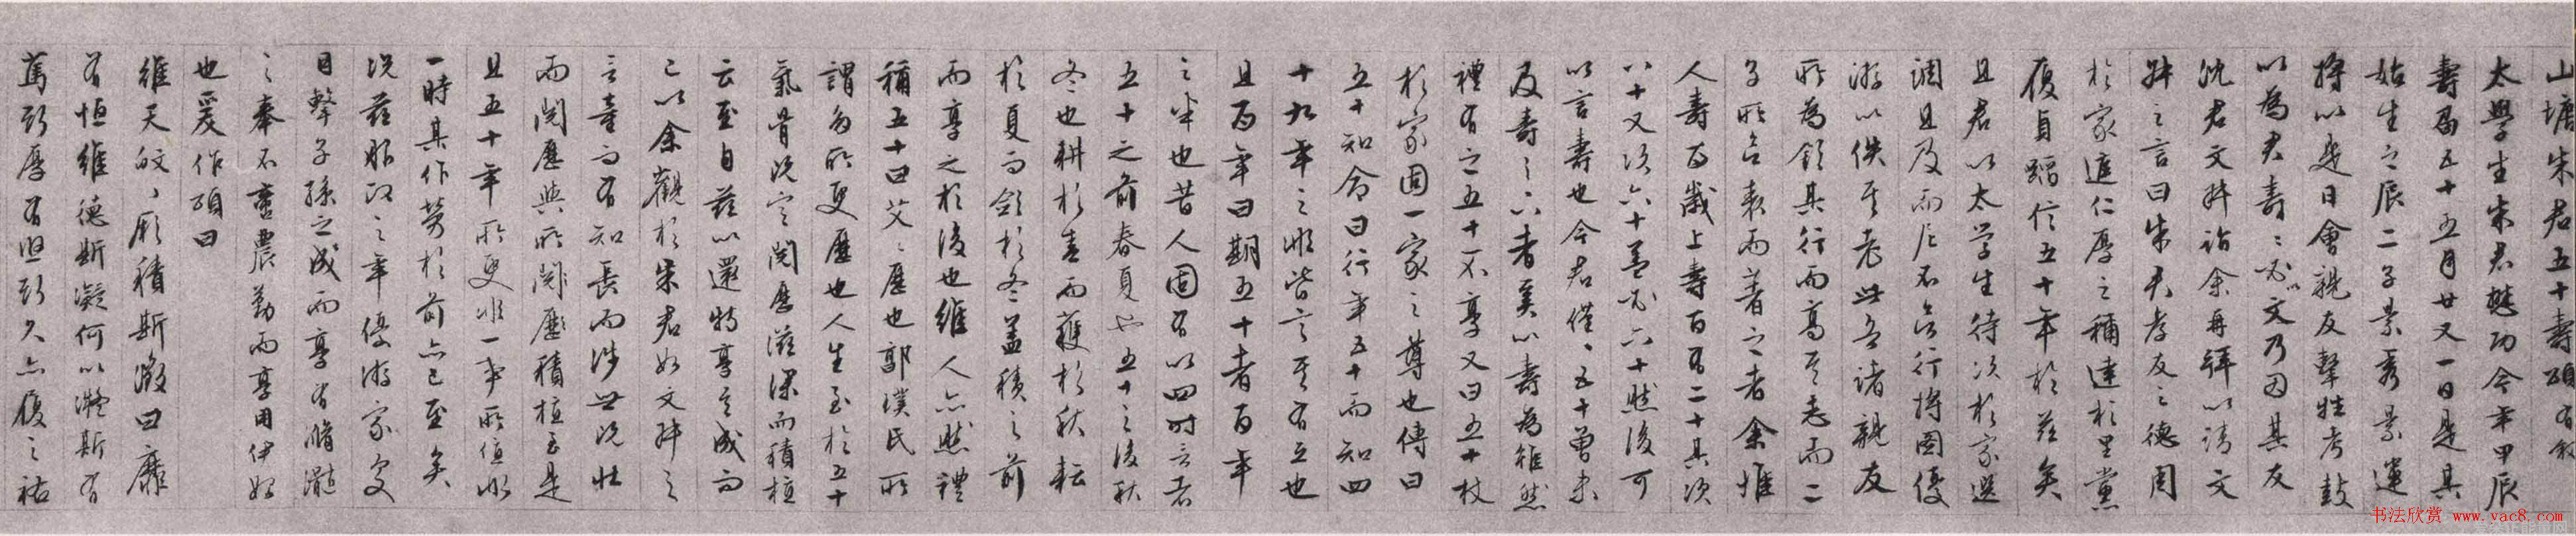 山塘朱君五十壽頌有敘
太學生朱君懋功今年甲辰
壽屆五十五月廿又一日是其
始生之辰二子景秀景運
將以是日會親友擊牲考鼓
以為君壽壽必文乃因其友
沈君文身詣余再拜以請文
之言曰朱君孝友之德周
於家庭仁厚之稱達於里黨
履貞蹈信五十年於茲矣
且君以太學生待次於家選
調且及而尼不欲行將圖優
游以佚其老此吾諸親友
所為領其行而高其志而二
子所欲表而著之者余惟
人壽百歲上壽百有二十其次
八十又次六十蓋必六十然後可
以言壽也今君僅僅五十曾未
及壽之下者奚以壽為雖然
禮有之五十不享又曰五十杖
於家固一家之尊也傳曰
五十知命曰行年五十而知四
十九年之非皆言其有立也
且百年曰期五十者百年
之半也昔人固有以四時言者
五十之前春夏也五十之後秋
冬也耕於春而穫於秋耘
於夏而斂於冬蓋積之前
而享之於後也維人亦然禮
稱五十曰艾艾歷也郭璞氏所
謂多所更歷也人生至於五十
氣骨既定閱歷滋深而積植
云至自茲以還特享其成而
已以余觀於朱君如文之
言童而有知長而涉世既壯
而閱歷與所閱歷積植至是
且五十年所更非一事所值非
一時其作勞於前亦已至矣
既茲服政之年優游家食
目擊子孫之成而享有脩瀡
之奉不啻農勤而享用伊始
也爰作頌曰
維天皎皎厥積斯激曰靡
有恒維德斯凝何以凝斯有
篤斯厚有思斯久亦履之祐
书法欣赏 www.yac8.com